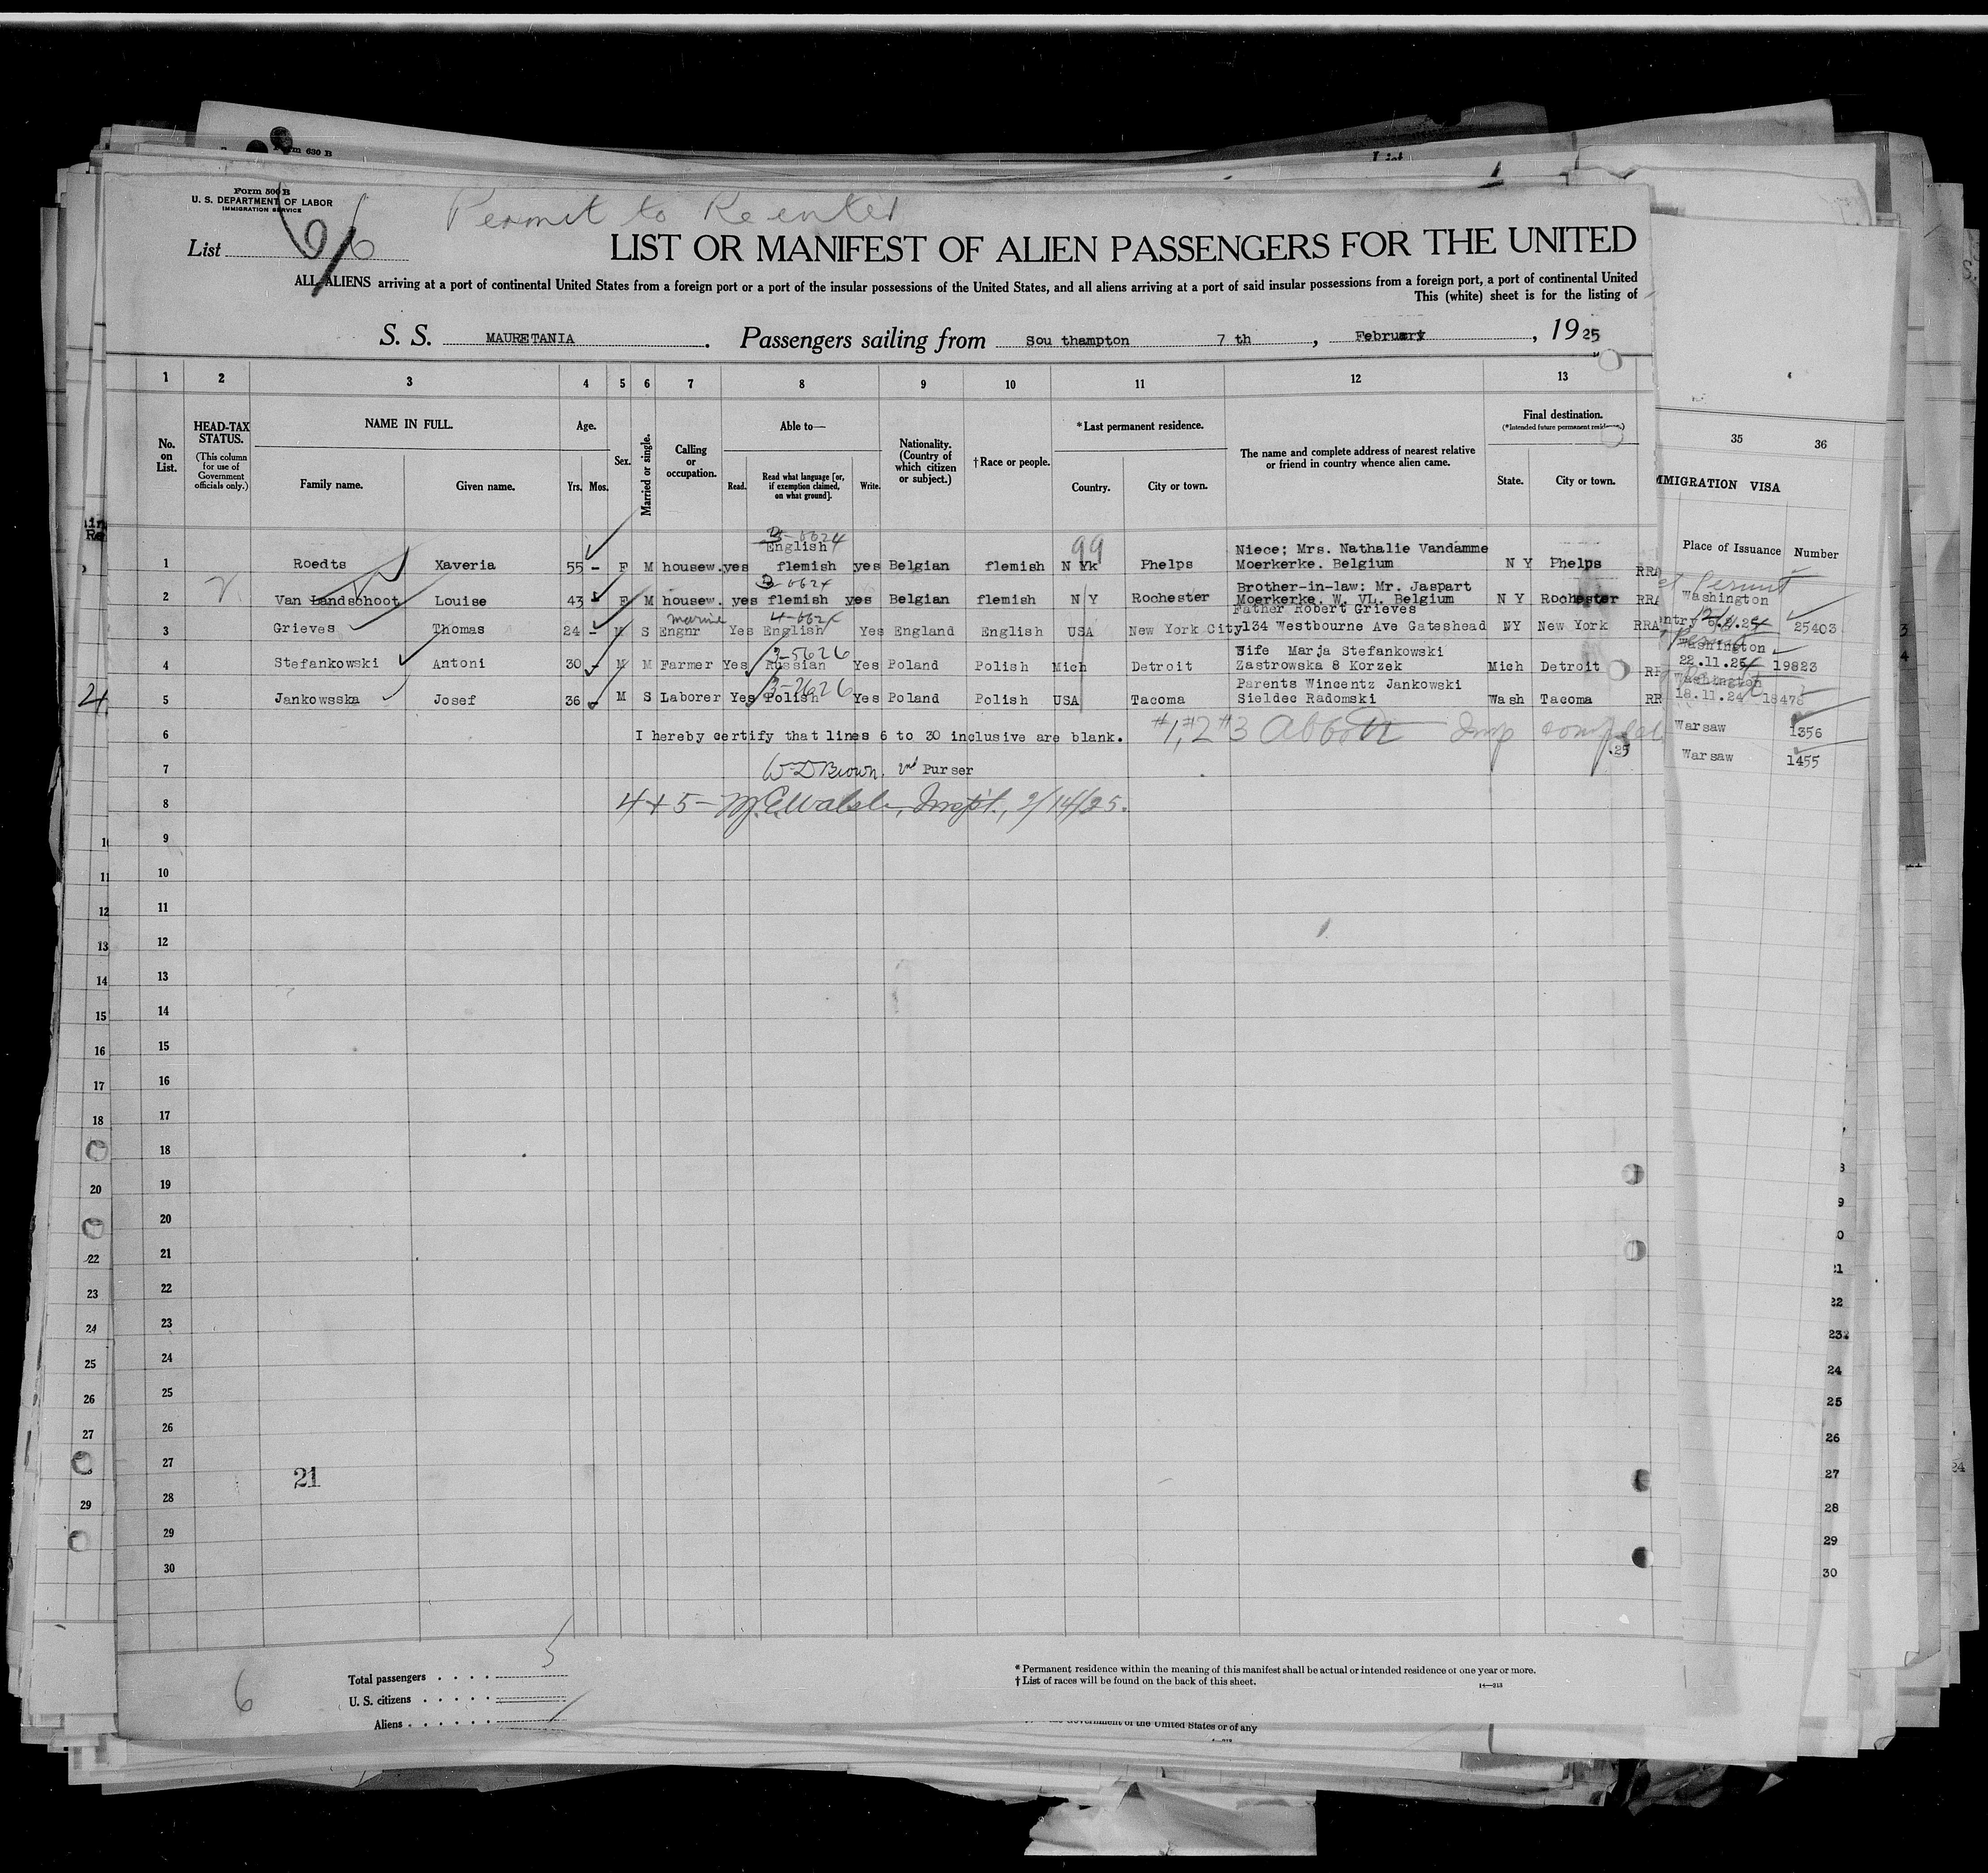 Form 630 B
Form 500 B
U. S. DEPARTMENT OF LABOR
IMMIGRATION SERVICE
Permit to Reenter
List 6
LIST OR MANIFEST OF ALIEN PASSENGERS FOR THE UNITED
ALL ALIENS arriving at a port of continental United States from a foreign port or a port of the insular possessions of the United States, and all aliens arriving at a port of said insular possessions from a foreign port, a port of continental United
This (white) sheet is for the listing of
S. S. MAURETANIA . Passengers sailing from Sou thampton 7 th , February , 1925
1 2 3 4 5 6 7 8 9 10 11 12 13
No. on List.
HEAD-TAX STATUS.
(This column for use of Government officials only.)
NAME IN FULL.
Family name. Given name.
Age.
Yrs. Mos.
Sex.
Married or single.
Calling or occupation.
Able to—
Read. Read what language [or, if exemption claimed, on what ground]. Write.
Nationality. (Country of which citizen or subject.)
†Race or people.
*Last permanent residence.
Country. City or town.
The name and complete address of nearest relative or friend in country whence alien came.
Final destination.
(*Intended future permanent residence.)
State. City or town.
35 36
MMIGRATION VISA
Place of Issuance Number
English
Niece; Mrs. Nathalie Vandamme
1 Roedts Xaveria 55 - F M housew. yes flemish yes Belgian flemish N Yk 99 Phelps Moerkerke. Belgium N Y Phelps
Brother-in-law: Mr. Jaspart
2 Van Landschoot Louise 43 - F M housew. yes flemish yes Belgian flemish N Y Rochester Moerkerke. W. VL. Belgium N Y Rochester
marine
Father Robert Grieves
3 Grieves Thomas 24 - M S Engnr Yes English Yes England English USA New York City 134 Westbourne Ave Gateshead NY New York
3-5626
Wife Marja Stefankowski
4 Stefankowski Antoni 30 - M M Farmer Yes Russian Yes Poland Polish Mich Detroit Zastrowska 8 Korzek Mich Detroit
Parents Wincentz Jankowski
5 Jankowsska Josef 36 - M S Laborer Yes Polish Yes Poland Polish USA Tacoma Sieldec Radomski Wash Tacoma
Permit
Washington
25403
Permit
Washington
22.11.24 19823
Washington
18.11.24 18478
Warsaw 1356
Warsaw 1455
6 I hereby certify that lines 6 to 30 inclusive are blank. #1, #2 #3 Abbott
7 W D Brown. 2nd Purser
8 4 + 5 - M. E. Walsh, Inspt., 2/14/25.
9
10
11
12
13
14
15
16
17
18
19
20
21
22
23
24
25
26
27
28
29
30
21
6
Total passengers 5
U. S. citizens
Aliens
* Permanent residence within the meaning of this manifest shall be actual or intended residence of one year or more.
† List of races will be found on the back of this sheet.
14—313
Government of the United States or of any